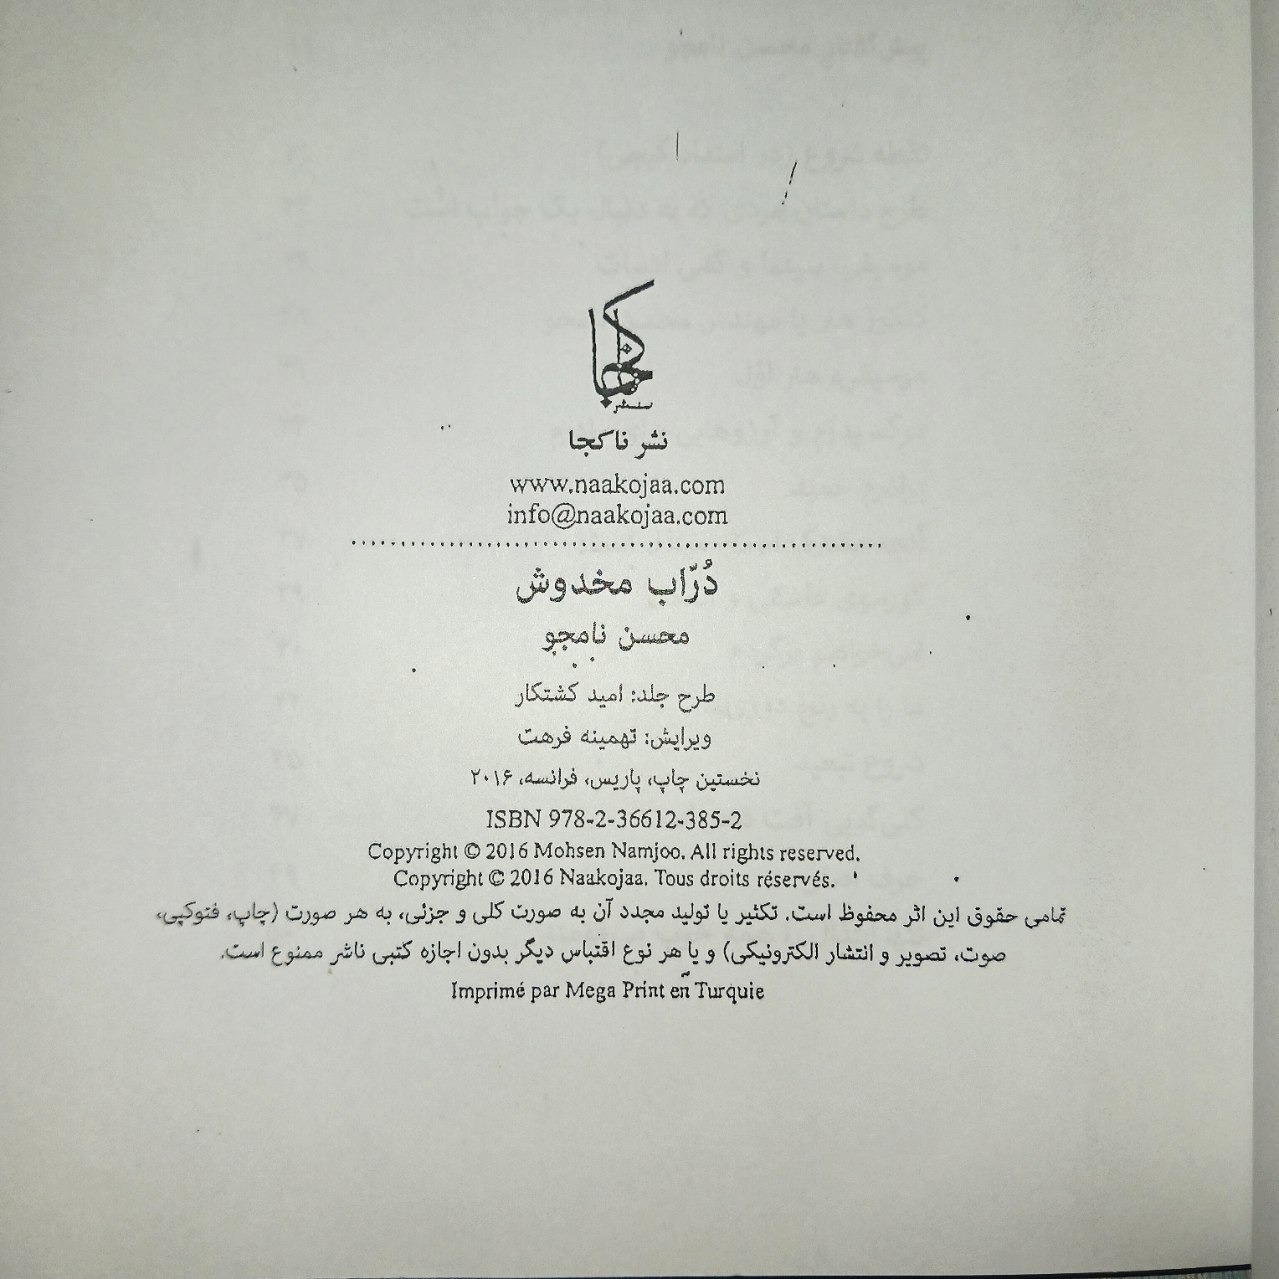 ناکجا
نشر
نشر ناکجا
www.naakojaa.com
info@naakojaa.com
دُرّاب مخدوش
محسن نامجو
طرح جلد: امید کشتکار
ویرایش: تهمینه فرهت
نخستین چاپ، پاریس، فرانسه، ۲۰۱۶
ISBN 978-2-36612-385-2
Copyright © 2016 Mohsen Namjoo. All rights reserved.
Copyright © 2016 Naakojaa. Tous droits réservés.
تمامی حقوق این اثر محفوظ است. تکثیر یا تولید مجدد آن به صورت کلی و جزئی، به هر صورت (چاپ، فتوکپی،
صوت، تصویر و انتشار الکترونیکی) و یا هر نوع اقتباس دیگر بدون اجازه کتبی ناشر ممنوع است.
Imprimé par Mega Print en Turquie